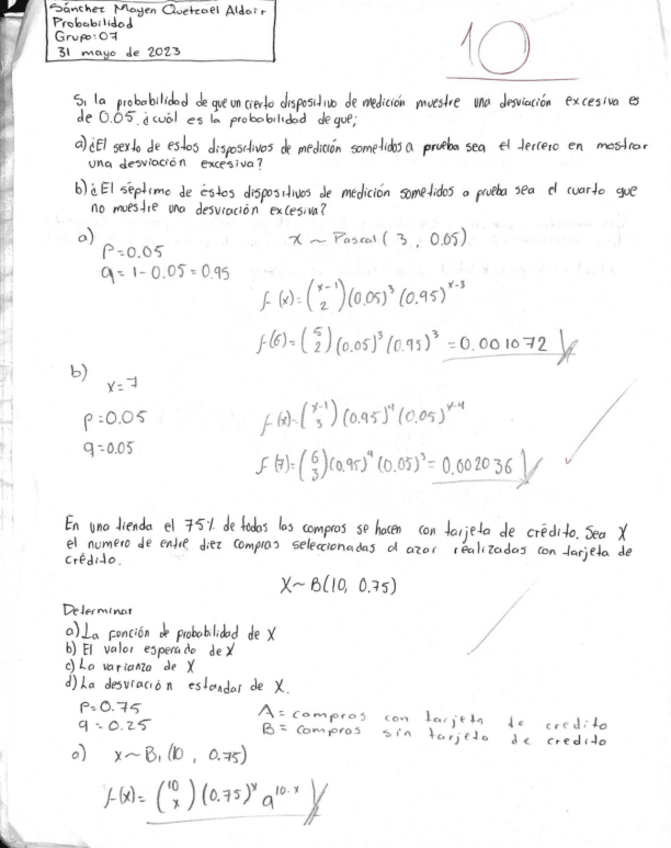 Sánchez Mayen Quetzael Aldair
Probabilidad
Grupo: 07
31 mayo de 2023
10
Si la probabilidad de que un cierto dispositivo de medición muestre una desviación excesiva es
de 0.05. ¿cuál es la probabilidad de que;
a) ¿El sexto de estos dispositivos de medición sometidos a prueba sea el tercero en mostrar
una desviación excesiva?
b) ¿El séptimo de estos dispositivos de medición sometidos a prueba sea el cuarto que
no muestre una desviación excesiva?
a)
P=0.05
q=1-0.05=0.95
x ~ Pascal (3, 0.05)
f(x)=(x-1 2)(0.05)³(0.95)^x-3
f(6)=(5 2)(0.05)³(0.95)³ = 0.001072
b)
x=7
p=0.05
q=0.05
f(x)=(x-1 3)(0.95)⁴(0.05)^x-4
f(7)=(6 3)(0.95)⁴(0.05)³ = 0.002036
En una tienda el 75% de todas las compras se hacen con tarjeta de crédito. Sea X
el numero de entre diez compras seleccionadas al azar realizadas con tarjeta de
crédito.
X~B(10, 0.75)
Determinar
a) La función de probabilidad de X
b) El valor esperado de X
c) La varianza de X
d) La desviación estandar de X.
P=0.75
q=0.25
A= compras con tarjeta de credito
B= compras sin tarjeta de credito
a) x~B, (10, 0.75)
f(x)= (10 x)(0.75)^x q^10-x